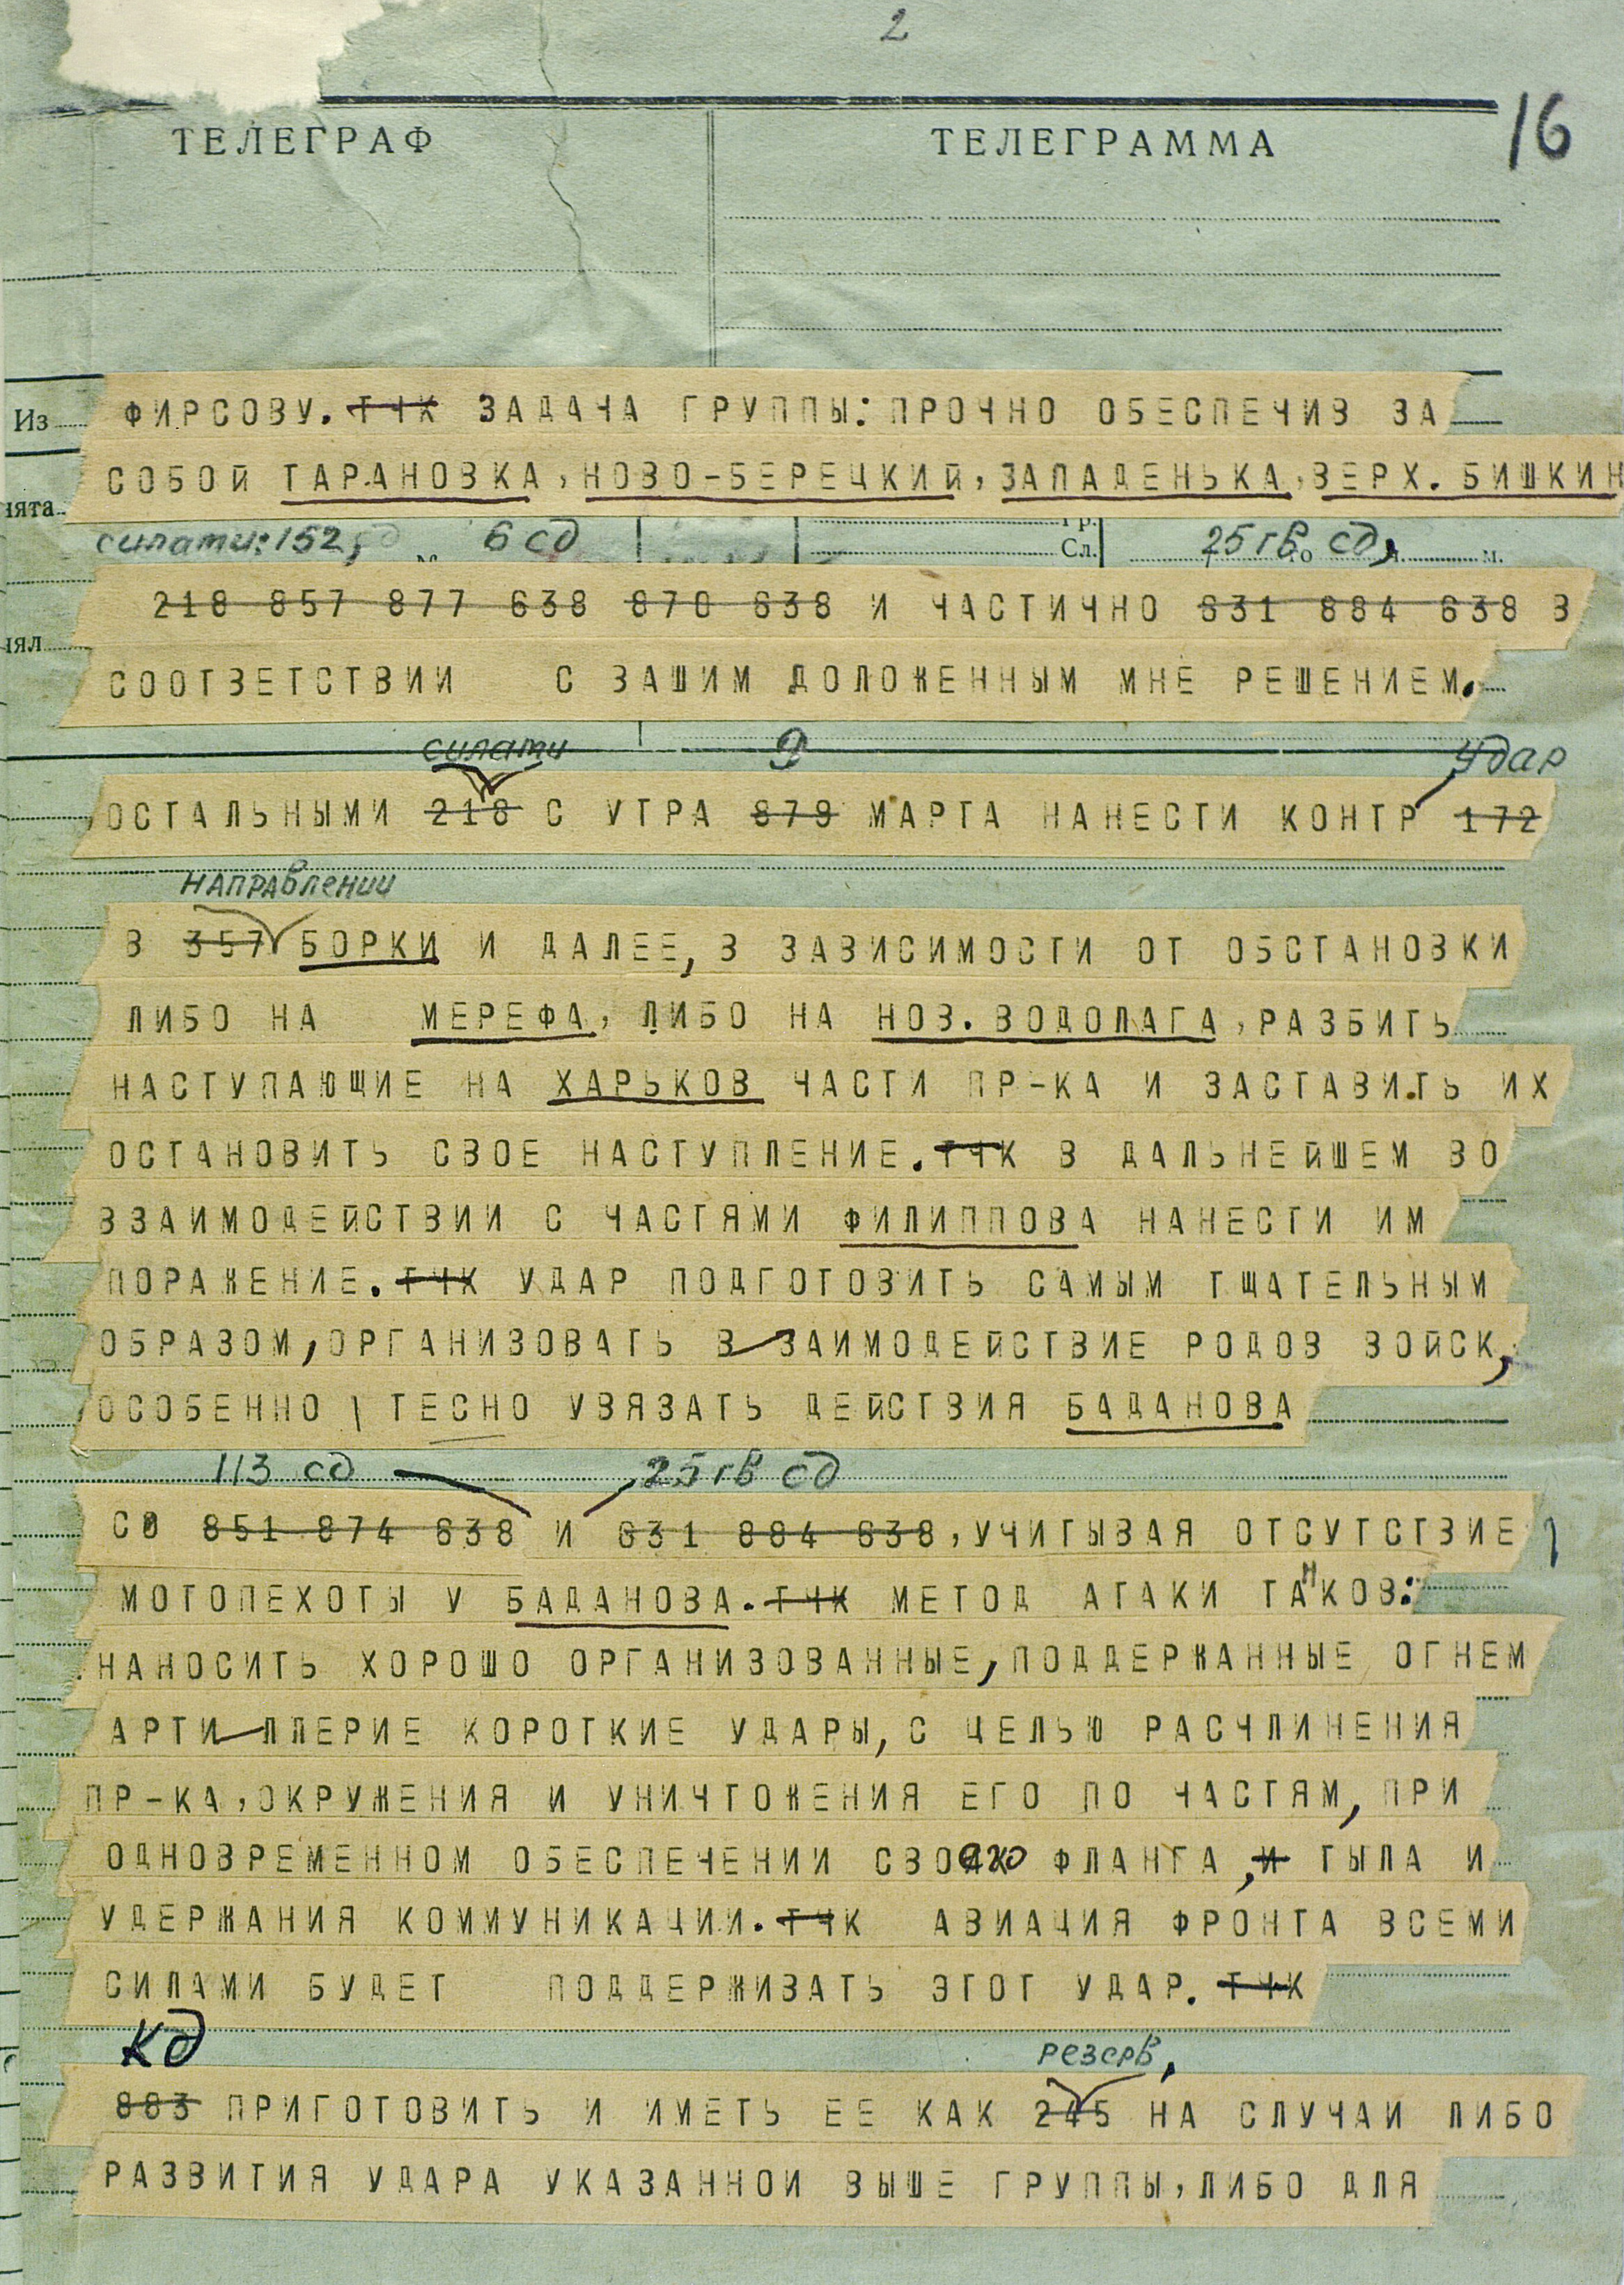 2
ТЕЛЕГРАФ ТЕЛЕГРАММА 16
Из ФИРСОВУ. ТЧК ЗАДАЧА ГРУППЫ: ПРОЧНО ОБЕСПЕЧИВ ЗА
СОБОЙ ТАРАНОВКА, НОВО-БЕРЕЦКИЙ, ЗАПАДЕНЬКА, ВЕРХ. БИШКИН
силами: 152, 6 сд Сл. 25 гв сд,
218 857 877 638 870 638 И ЧАСТИЧНО 631 884 638 В
СООТВЕТСТВИИ С ВАШИМ ДОЛОЖЕННЫМ МНЕ РЕШЕНИЕМ.
силами 9 удар
ОСТАЛЬНЫМИ 218 С УТРА 879 МАРТА НАНЕСТИ КОНТР 172
направлении
В 357 БОРКИ И ДАЛЕЕ, В ЗАВИСИМОСТИ ОТ ОБСТАНОВКИ
ЛИБО НА МЕРЕФА, ЛИБО НА НОВ. ВОДОЛАГА, РАЗБИТЬ
НАСТУПАЮЩИЕ НА ХАРЬКОВ ЧАСТИ ПР-КА И ЗАСТАВИТЬ ИХ
ОСТАНОВИТЬ СВОЕ НАСТУПЛЕНИЕ. ТЧК В ДАЛЬНЕЙШЕМ ВО
ВЗАИМОДЕЙСТВИИ С ЧАСТЯМИ ФИЛИППОВА НАНЕСТИ ИМ
ПОРАЖЕНИЕ. ТЧК УДАР ПОДГОТОВИТЬ САМЫМ ТЩАТЕЛЬНЫМ
ОБРАЗОМ, ОРГАНИЗОВАТЬ ВЗАИМОДЕЙСТВИЕ РОДОВ ВОЙСК,
ОСОБЕННО ТЕСНО УВЯЗАТЬ ДЕЙСТВИЯ БАДАНОВА
113 сд 25 гв сд
СО 851 874 638 И 631 884 638, УЧИТЫВАЯ ОТСУТСТВИЕ
МОТОПЕХОТЫ У БАДАНОВА. ТЧК МЕТОД АТАКИ ТАНКОВ:
НАНОСИТЬ ХОРОШО ОРГАНИЗОВАННЫЕ, ПОДДЕРЖАННЫЕ ОГНЕМ
АРТИЛЛЕРИЕ КОРОТКИЕ УДАРЫ, С ЦЕЛЬЮ РАСЧЛИНЕНИЯ
ПР-КА, ОКРУЖЕНИЯ И УНИЧТОЖЕНИЯ ЕГО ПО ЧАСТЯМ, ПРИ
ОДНОВРЕМЕННОМ ОБЕСПЕЧЕНИИ СВОЕГО ФЛАНГА, И ТЫЛА И
УДЕРЖАНИЯ КОММУНИКАЦИИ. ТЧК АВИАЦИЯ ФРОНТА ВСЕМИ
СИЛАМИ БУДЕТ ПОДДЕРЖИВАТЬ ЭТОТ УДАР. ТЧК
Кд резерв,
883 ПРИГОТОВИТЬ И ИМЕТЬ ЕЕ КАК 245 НА СЛУЧАИ ЛИБО
РАЗВИТИЯ УДАРА УКАЗАННОИ ВЫШЕ ГРУППЫ, ЛИБО ДЛЯ